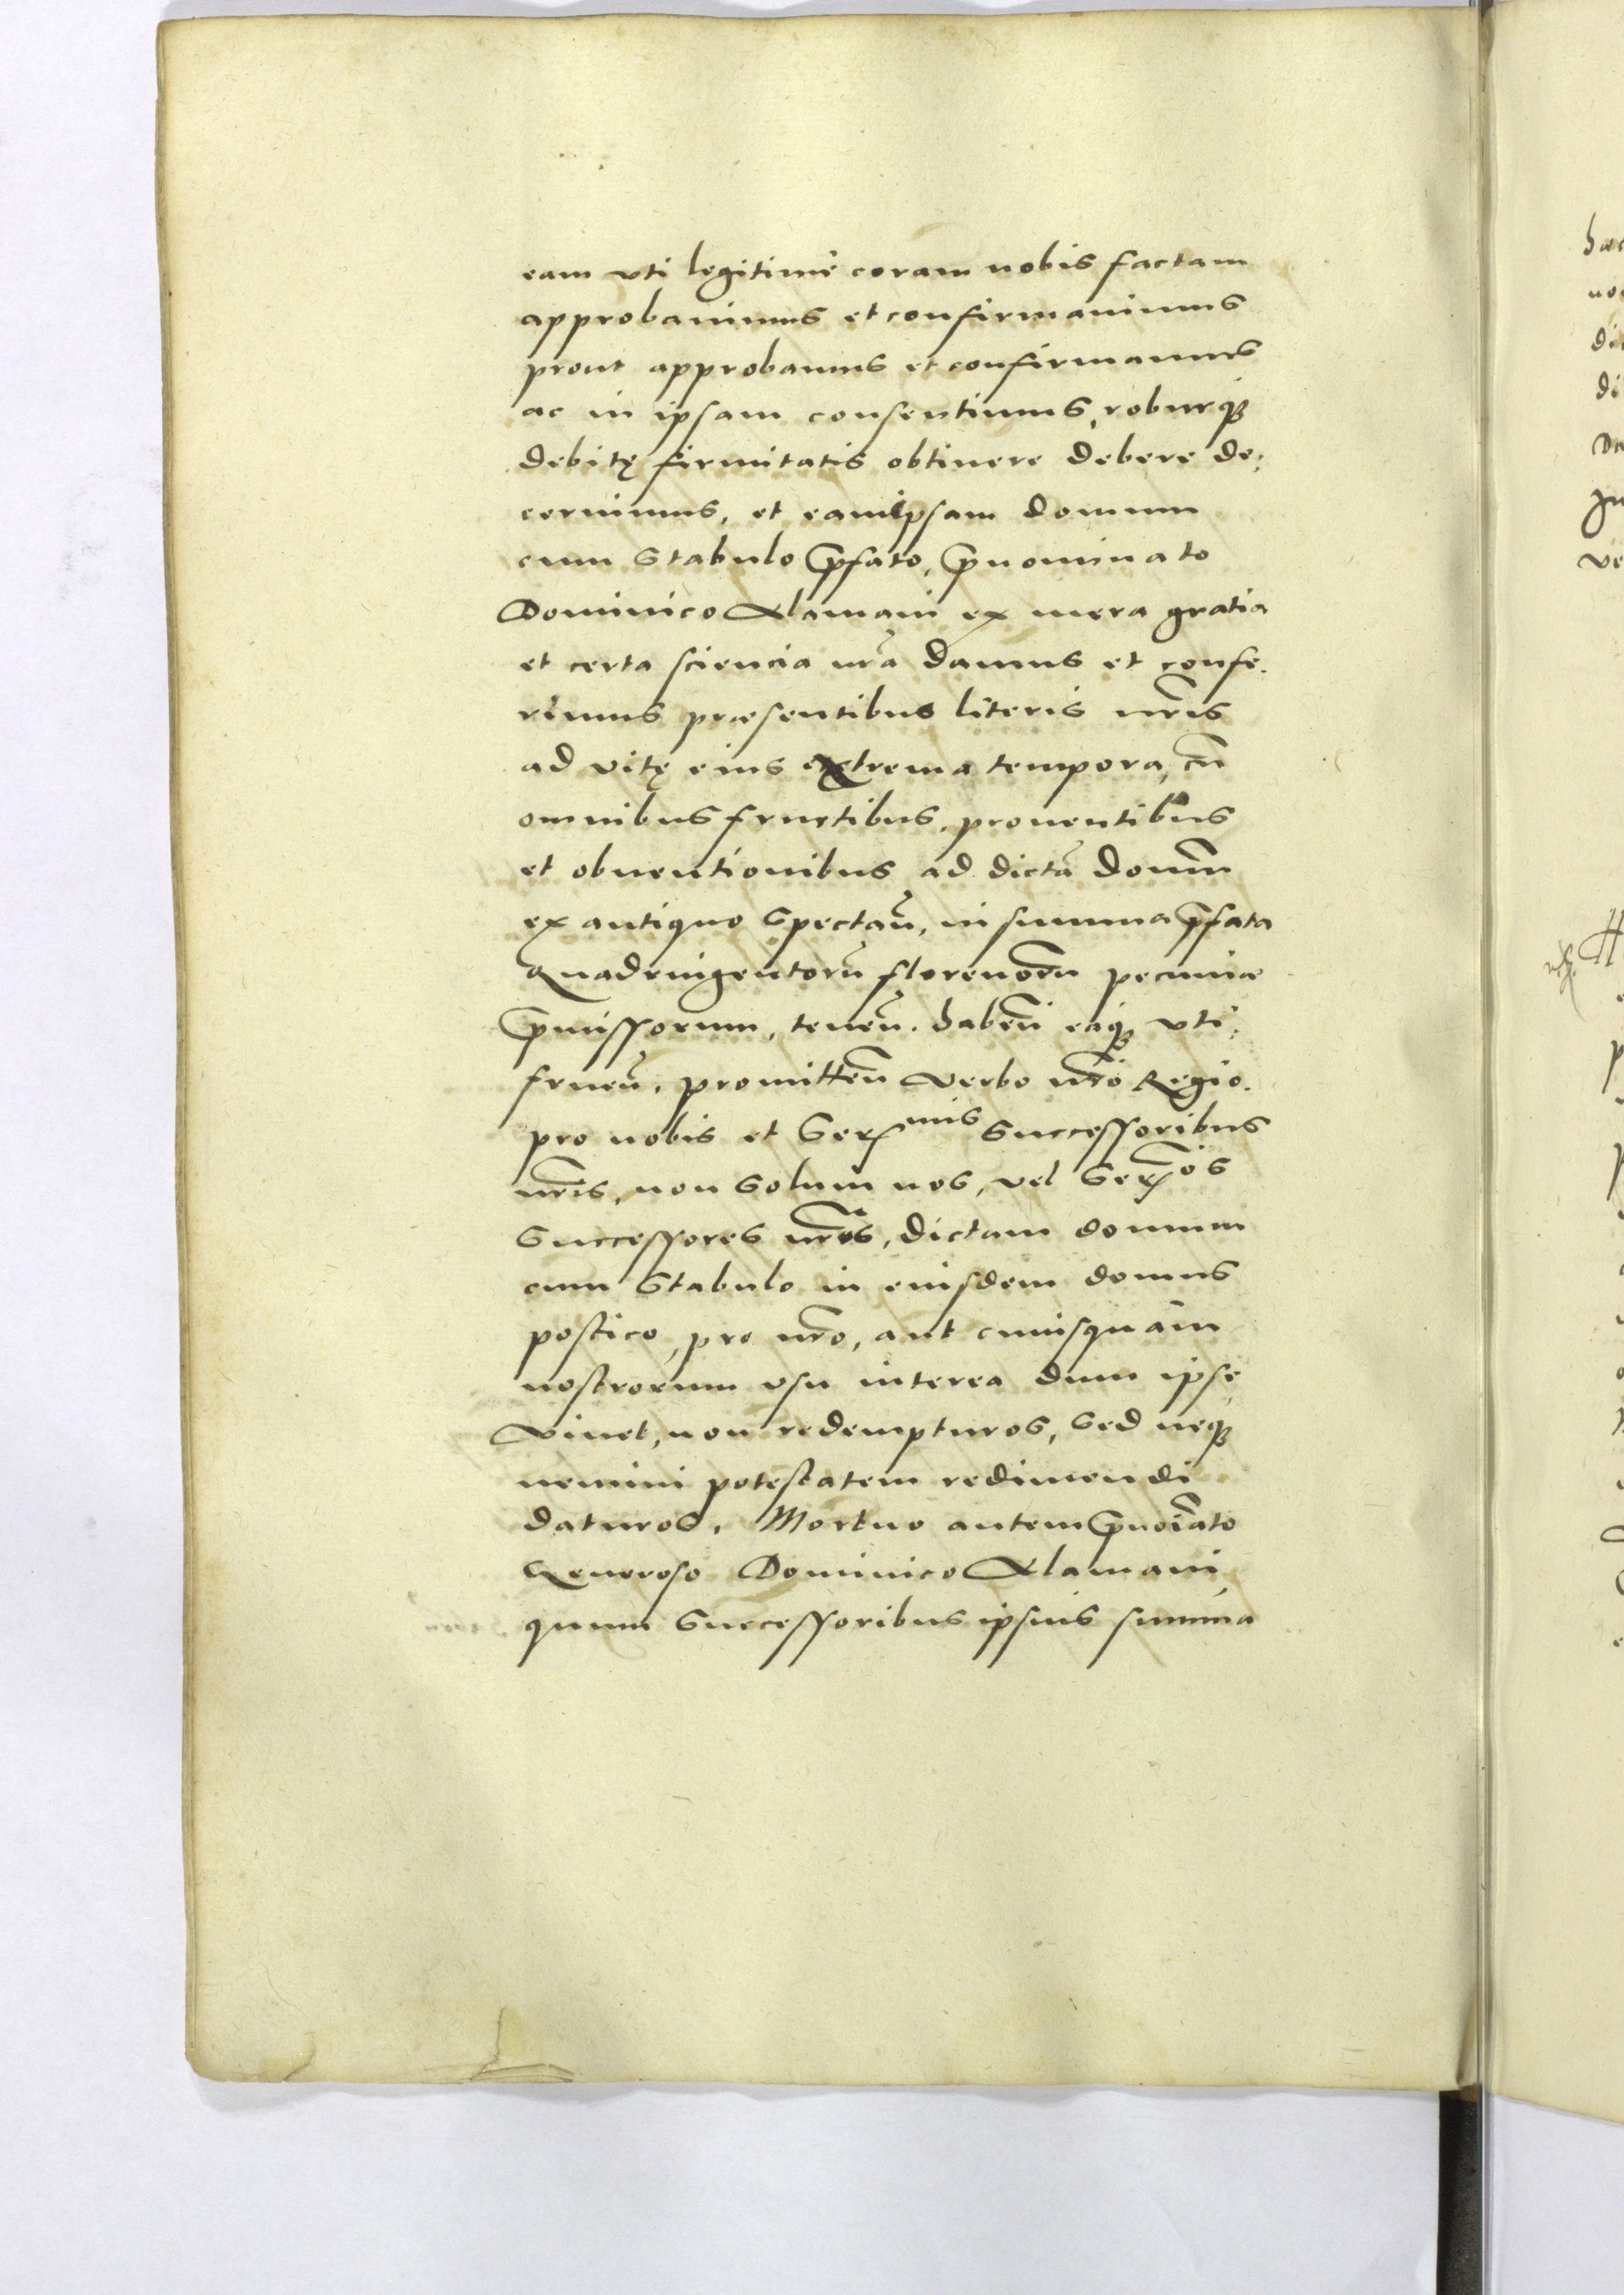 eam vti legitime coram nobis factam
approbauimus et confirmauimus
prout approbamus et confirmamus
ac in ipsam consentimus, roburqꜟ
debitę firmitatis obtinere debere de:
cernimus, et eamipsam domum
cum Stabulo p̄fato, p̄nominato
Dominico Alamani ex mera gratia
et certa sciencia nr̄a damus et confe.
rimus præsentibus literis nr̄is
ad vitę eius extrema tempora, cū
omnibus fructibus, prouentibus
et obuentionibus ad dictā domū
ex antiquo Spectan̄, in summa p̄fata
Quadringentorū florenorū pecuniæ
p̄missorum, tenen̄. haben̄ eaqꜟ vti:
fruen̄, promitten̄ Verbo nr̄o Regio.
pro nobis et Ser^mis Successoribus
nr̄is, non Solum nos, vel Ser^mos
Successores nr̄os, dictam domum
cum Stabulo in eiusdem domus
postico, pro nr̄o, aut cuiusquam
nostrorum vsu interea dum ipse
Viuet, non redempturos, Sed neqꜟ
nemini potestatem redimendi
daturos. Mortuo autem p̄noīato
Generoso Dominico Alamani
quum Successoribus ipsius summa